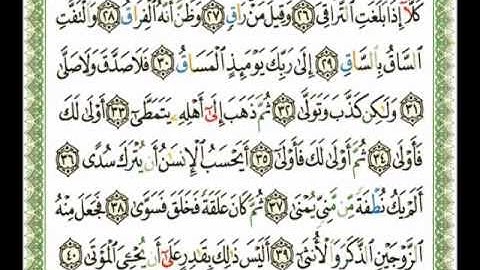 كَلَّآ إِذَا بَلَغَتِ ٱلتَّرَاقِيَ ٢٦ وَقِيلَ مَنْ رَاقٍ ٢٧ وَظَنَّ أَنَّهُ ٱلْفِرَاقُ ٢٨ وَٱلْتَفَّتِ
ٱلسَّاقُ بِٱلسَّاقِ ٢٩ إِلَىٰ رَبِّكَ يَوْمَئِذٍ ٱلْمَسَاقُ ٣٠ فَلَا صَدَّقَ وَلَا صَلَّىٰ
٣١ وَلَٰكِن كَذَّبَ وَتَوَلَّىٰ ٣٢ ثُمَّ ذَهَبَ إِلَىٰٓ أَهْلِهِۦ يَتَمَطَّىٰٓ ٣٣ أَوْلَىٰ لَكَ
فَأَوْلَىٰ ٣٤ ثُمَّ أَوْلَىٰ لَكَ فَأَوْلَىٰٓ ٣٥ أَيَحْسَبُ ٱلْإِنسَٰنُ أَن يُتْرَكَ سُدًى ٣٦
أَلَمْ يَكُ نُطْفَةً مِّن مَّنِيٍّ يُمْنَىٰ ٣٧ ثُمَّ كَانَ عَلَقَةً فَخَلَقَ فَسَوَّىٰ ٣٨ فَجَعَلَ مِنْهُ
ٱلزَّوْجَيْنِ ٱلذَّكَرَ وَٱلْأُنثَىٰٓ ٣٩ أَلَيْسَ ذَٰلِكَ بِقَٰدِرٍ عَلَىٰٓ أَن يُحْـِۧيَ ٱلْمَوْتَىٰ ٤٠